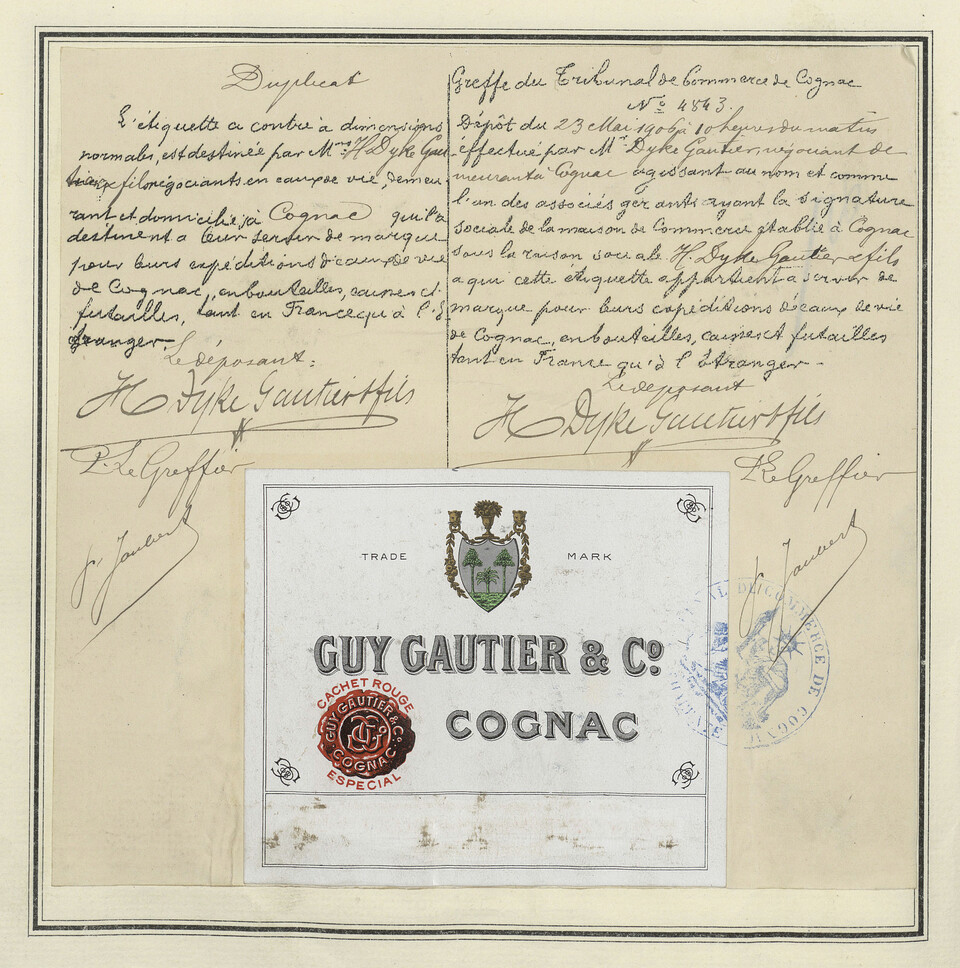 Duplicat
L'étiquette ci contre à dimensions
normales, est destinée par Mrs H. Dyke Gau
tier & fils négociants en eaux de vie, demeu
rant et domiciliés à Cognac qui la
destinent a leur servir de marque
pour leurs expéditions d'eaux de vie
de Cognac, en bouteilles, caisses et
futailles, tant en France qu'à l'é
tranger.
Le déposant:
H Dyke Gautier & fils
P. Le Greffier
Jaubert
Greffe du Tribunal de Commerce de Cognac
No 4843.
Dépôt du 23 Mai 1906 à 10 heures du matin
effectué par Mr Dyke Gautier, négociant de
meurant à Cognac agissant au nom et comme
l'un des associés gérants ayant la signature
sociale de la maison de Commerce établie à Cognac
sous la raison sociale H. Dyke Gautier & fils
a qui cette étiquette appartient a servir de
marque pour leurs expéditions d'eaux de vie
de Cognac, en bouteilles, caisses et futailles
tant en France qu'à l'étranger.
Le déposant
H Dyke Gautier & fils
P. Le Greffier
Jaubert
TRADE MARK
GUY GAUTIER & Co.
COGNAC
CACHET ROUGE
GUY GAUTIER & Co.
COGNAC
ESPECIAL
TRIBUNAL DE COMMERCE DE COGNAC